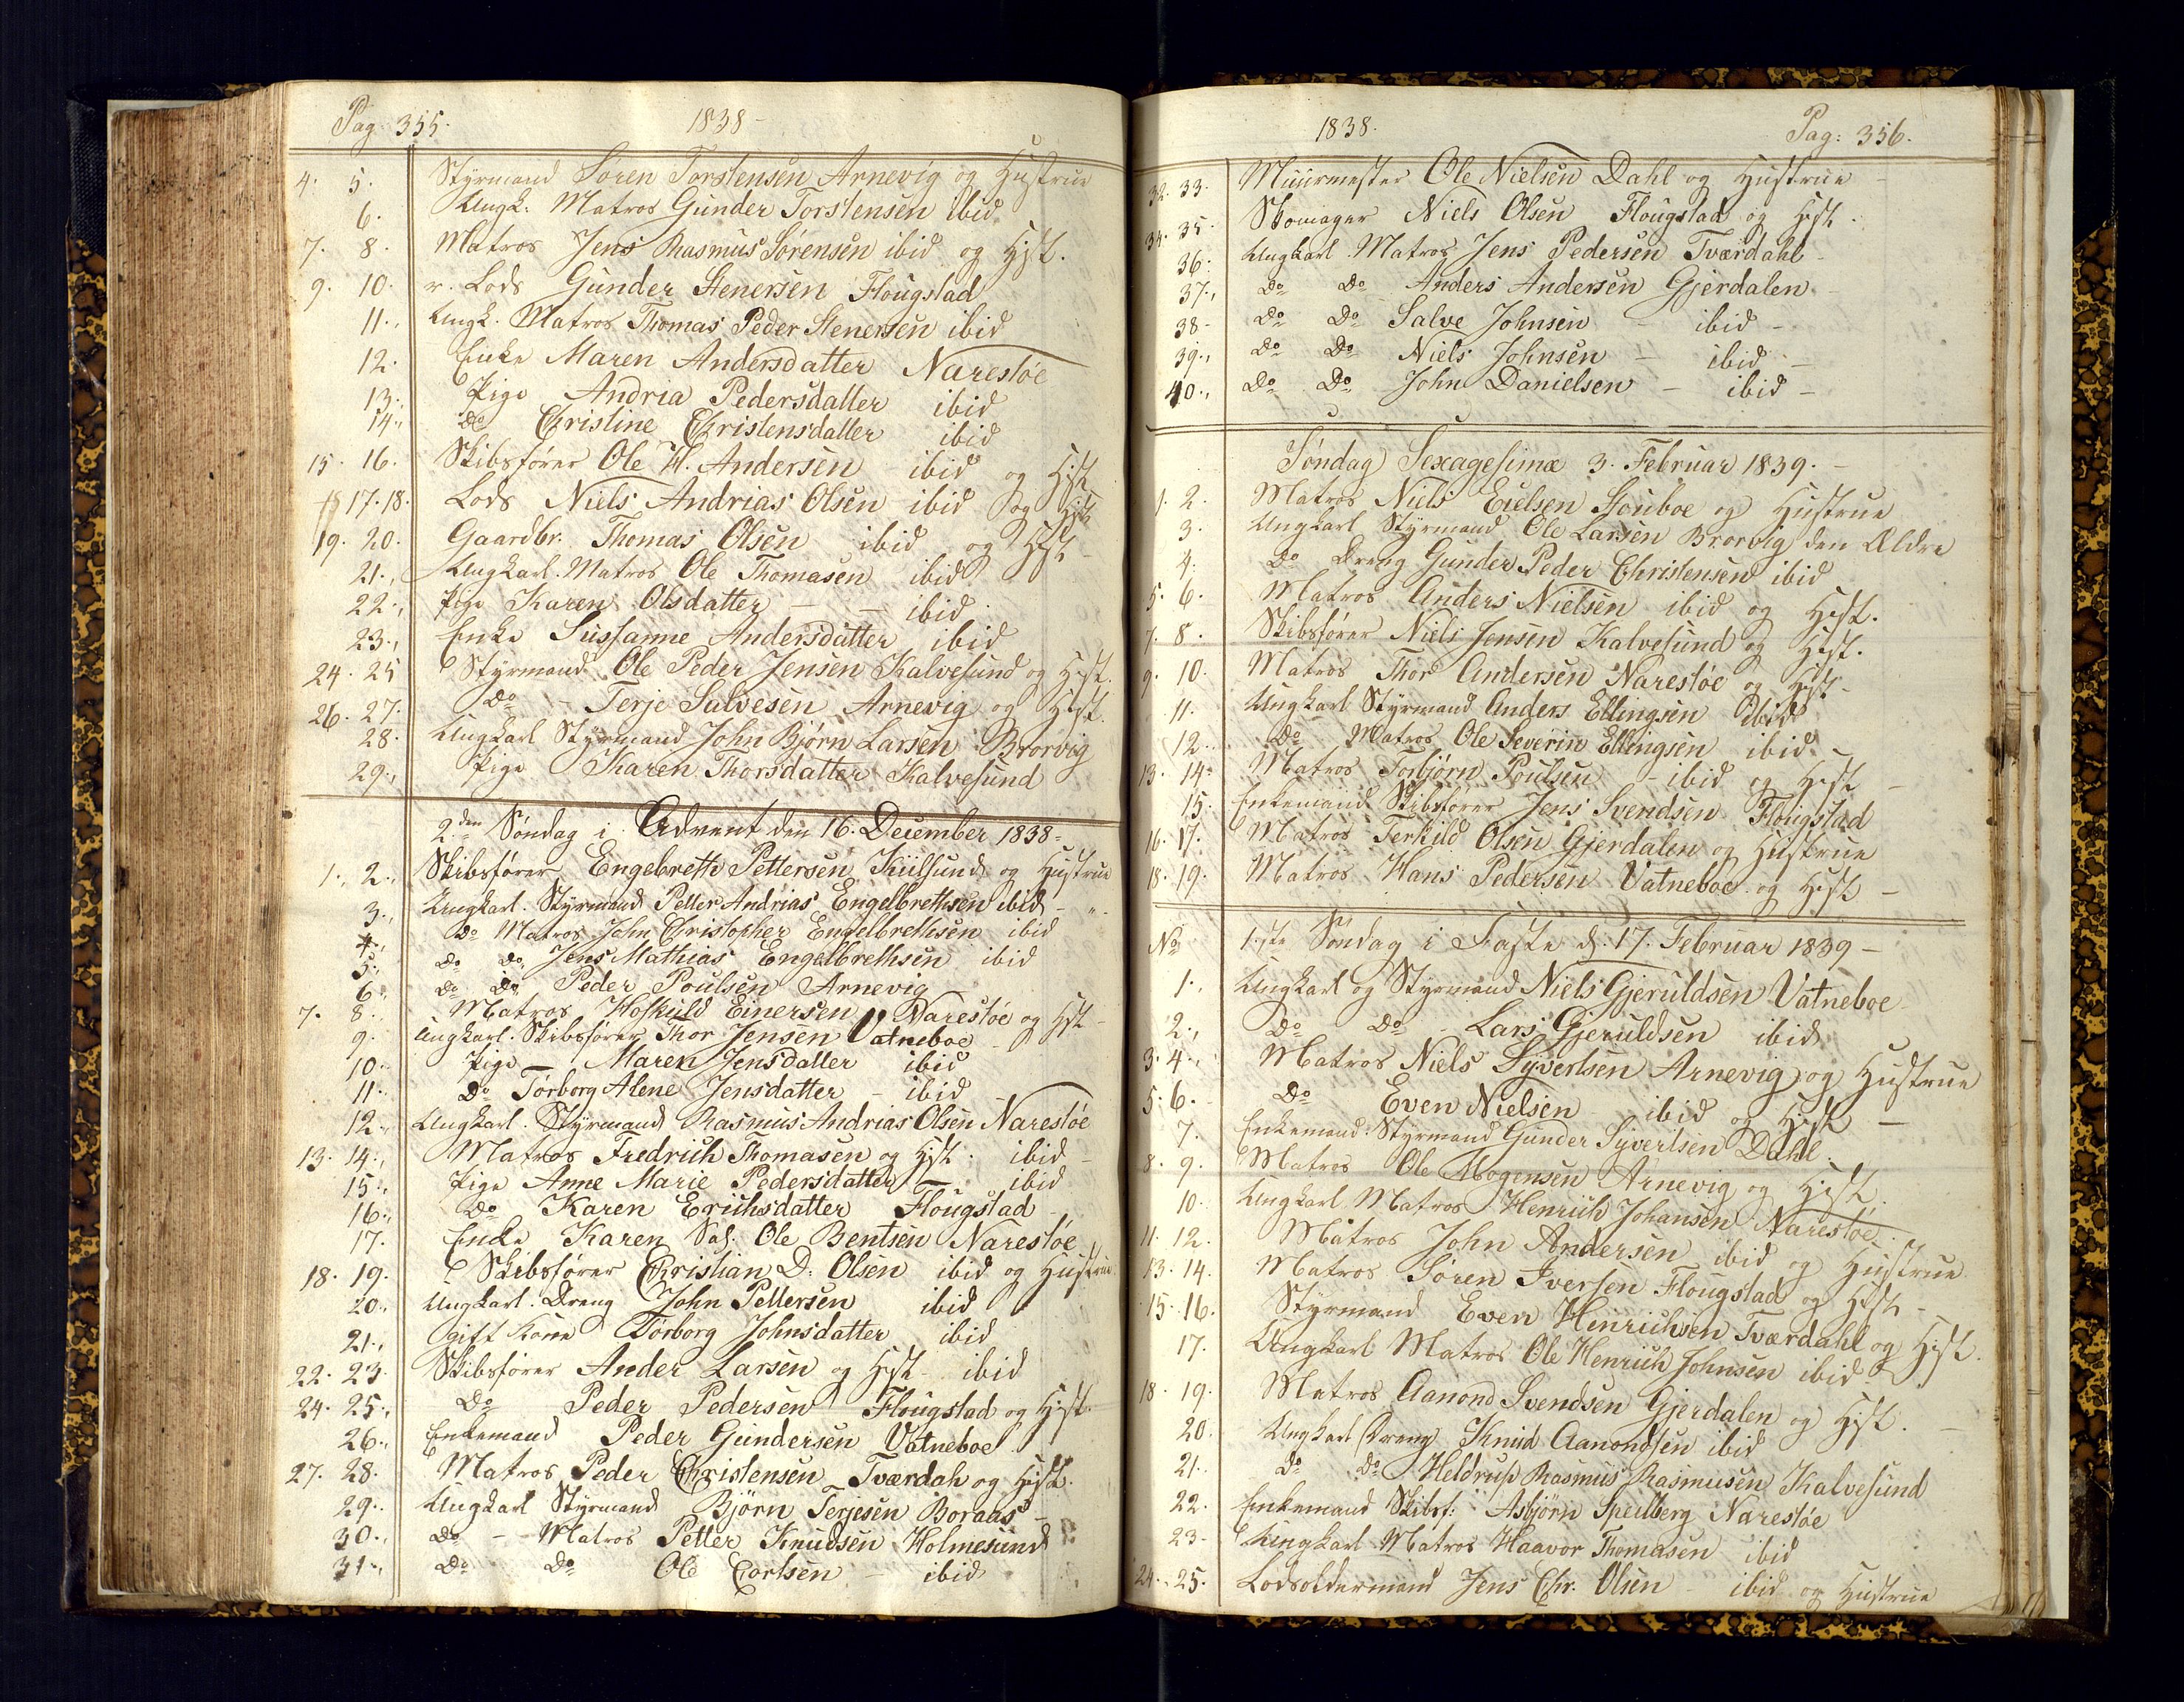 Pag: 355. 1838 -
4. 5. Styrmand Søren Torstensen Arnevig og Hustrue
6. Ungk: Matros Gunder Torstensen ibid
7. 8. Matros Jens Rasmus Sørensen ibid og Hst.
9. 10. r. Lods Gunder Stenersen Flougstad
11., Ungk. Matros Thomas Peder Stenersen ibid
12. Enke Maren Andersdatter Narestøe
13., Pige Andria Pedersdatter ibid
14., Do Christine Christensdatter ibid
15. 16. Skibsfører Ole H. Andersen ibid og Hst
17. 18. Lods Niels Andrias Olsen ibid og Hst
19. 20. Gaardbr. Thomas Olsen ibid og Hst -
21., Ungkarl. Matros Ole Thomasen ibid
22., Pige Karen Olsdatter - - ibid
23., Enke Sussanne Andersdatter ibid
24. 25 Styrmand Ole Peder Jensen Kalvesund og Hst.
26. 27. Do - Terje Salvesen Arnevig og Hst.
28. Ungkarl Styrmand John Bjørn Larsen Brorvig
29., Pige Karen Thorsdatter Kalvesund
2den Søndag i Advent den 16. December 1838 -
1., 2., Skibsfører Engebreth Pettersen Kiilsund og Hustrue
3., Ungkarl. Styrmand Petter Andrias Engelbrethsen ibid - " -
4., Do Matros John Christopher Engelbrethsen ibid
5., Do Do Jens Mathias Engelbrethsen ibid
6., Do Do Peder Poulsen Arnevig
7. 8., Matros Hofkuld Einersen Narestøe og Hst -
9. Ungkarl. Skibsfører Thor Jensen Vatneboe -
10., Pige Maren Jensdatter ibid
11., Do Torborg Alene Jensdatter - ibid -
12., Ungkarl. Styrmand Rasmus Andrias Olsen Narestøe
13. 14., Matros Fredrich Thomasen og Hst. ibid -
15., Pige Anne Marie Pedersdatter - ibid
16., Do Karen Erichsdatter Flougstad -
17. Enke Karen Sal. Ole Bentsen Narestøe
18. 19. Skibsfører Christian D. Olsen ibid og Hustrue
20., Ungkarl. Dreng John Pettersen ibid
21., gift Kone Torborg Johnsdatter ibid
22. 23. Skibsfører Ander Larsen og Hst - ibid
24. 25., Do Peder Pedersen Flougstad og Hst.
26., Enkemand Peder Gundersen Vatneboe
27. 28. Matros Peder Christensen Tværdah og Hst.
29., Ungkarl Styrmand Bjørn Terjesen Boraas -
30., Do - Matros Petter Knudsen Holmesund
31., Do Do Ole Corlsen - ibid
1838. Pag: 356.
32. 33. Muurmester Ole Nielsen Dahl og Hustrue -
34. 35. Skomager Niels Olsen Flougstad og Hst.
36. Ungkarl Matros Jens Pedersen Tværdahl -
37., Do Do Anders Andersen Gjerdalen -
38 - Do Do Salve Johnsen - ibid -
39., Do Do Niels Johnsen - ibid -
40., Do Do John Danielsen - ibid -
Søndag Sexagesimæ 3. Februar 1839. -
1. 2. Matros Niels Eielsen Stouboe og Hustrue
3. Ungkarl Styrmand Ole Larsen Brorvig den Ældre
4. Do Dreng Gunder Peder Christensen ibid
5. 6. Matros Anders Nielsen ibid og Hst.
7. 8. Skibsfører Niels Jensen Kalvesund og Hst.
9. 10. Matros Thor Andersen Narestøe og Hst -
11. Ungkarl Styrmand Anders Ellingsen ibid
12. Do Matros Ole Severin Ellingsen ibid -
13. 14. Matros Torbjørn Poulsen - ibid og Hst -
15. Enkemand Skibsfører Jens Svendsen Flougstad
16. 17. Matros Terkild Olsen Gjerdalen og Hustrue
18. 19. Matros Hans Pedersen Vatneboe og Hst -
No 1.ste Søndag i Faste d. 17. Februar 1839 -
1., Ungkarl og Styrmand Niels Gjeruldsen Vatneboe
2., Do Do - Lars Gjeruldsen ibid
3. 4., Matros Niels Syvertsen Arnevig og Hustrue
5. 6. Do Even Nielsen - ibid og Hst -
7. Enkemand. Styrmand Gunder Syvertsen Dahl
8. 9. Matros Ole Mogensen Arnevig og Hst.
10. Ungkarl Matros Henrich Johansen Narestøe
11. 12. Matros John Andersen ibid og Hustrue
13. 14. Matros Søren Iversen Flougstad og Hst -
15. 16. Styrmand Even Henrichsen Tværdahl og Hst.
17. Ungkarl Matros Ole Henrich Johnsen ibid -
18. 19. Matros Aanond Svendsen Gjerdalen og Hst. -
20. Ungkarl (Dreng) Knud Aanondsen ibid
21. Do Do Heldrup Rasmus Rasmusen Kalvesund
22. Enkemand Skibsf: Asbjørn Speilberg Narestøe
23. Ungkarl Matros Haavor Thomasen ibid
24. 25. Lodsoldermand Jens Chr. Olsen - ibid og Hustrue